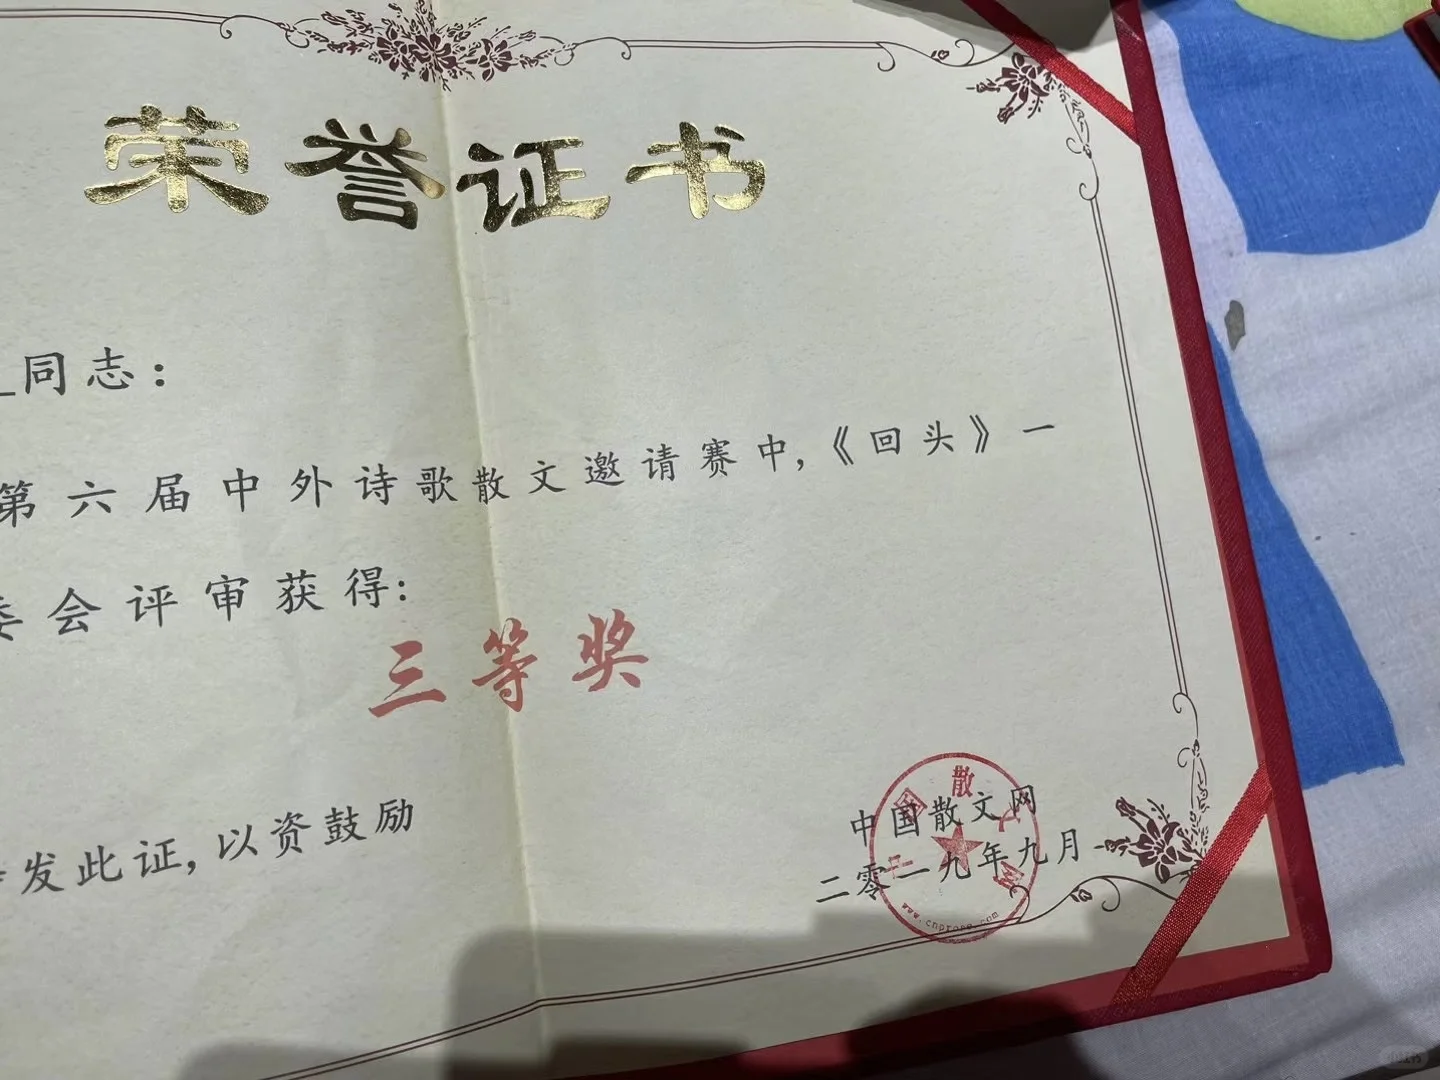 荣誉证书
同志：
第六届中外诗歌散文邀请赛中，《回头》一
委会评审获得：
三等奖
发此证，以资鼓励
中国散文网
二零一九年九月
中国散文网
小红书